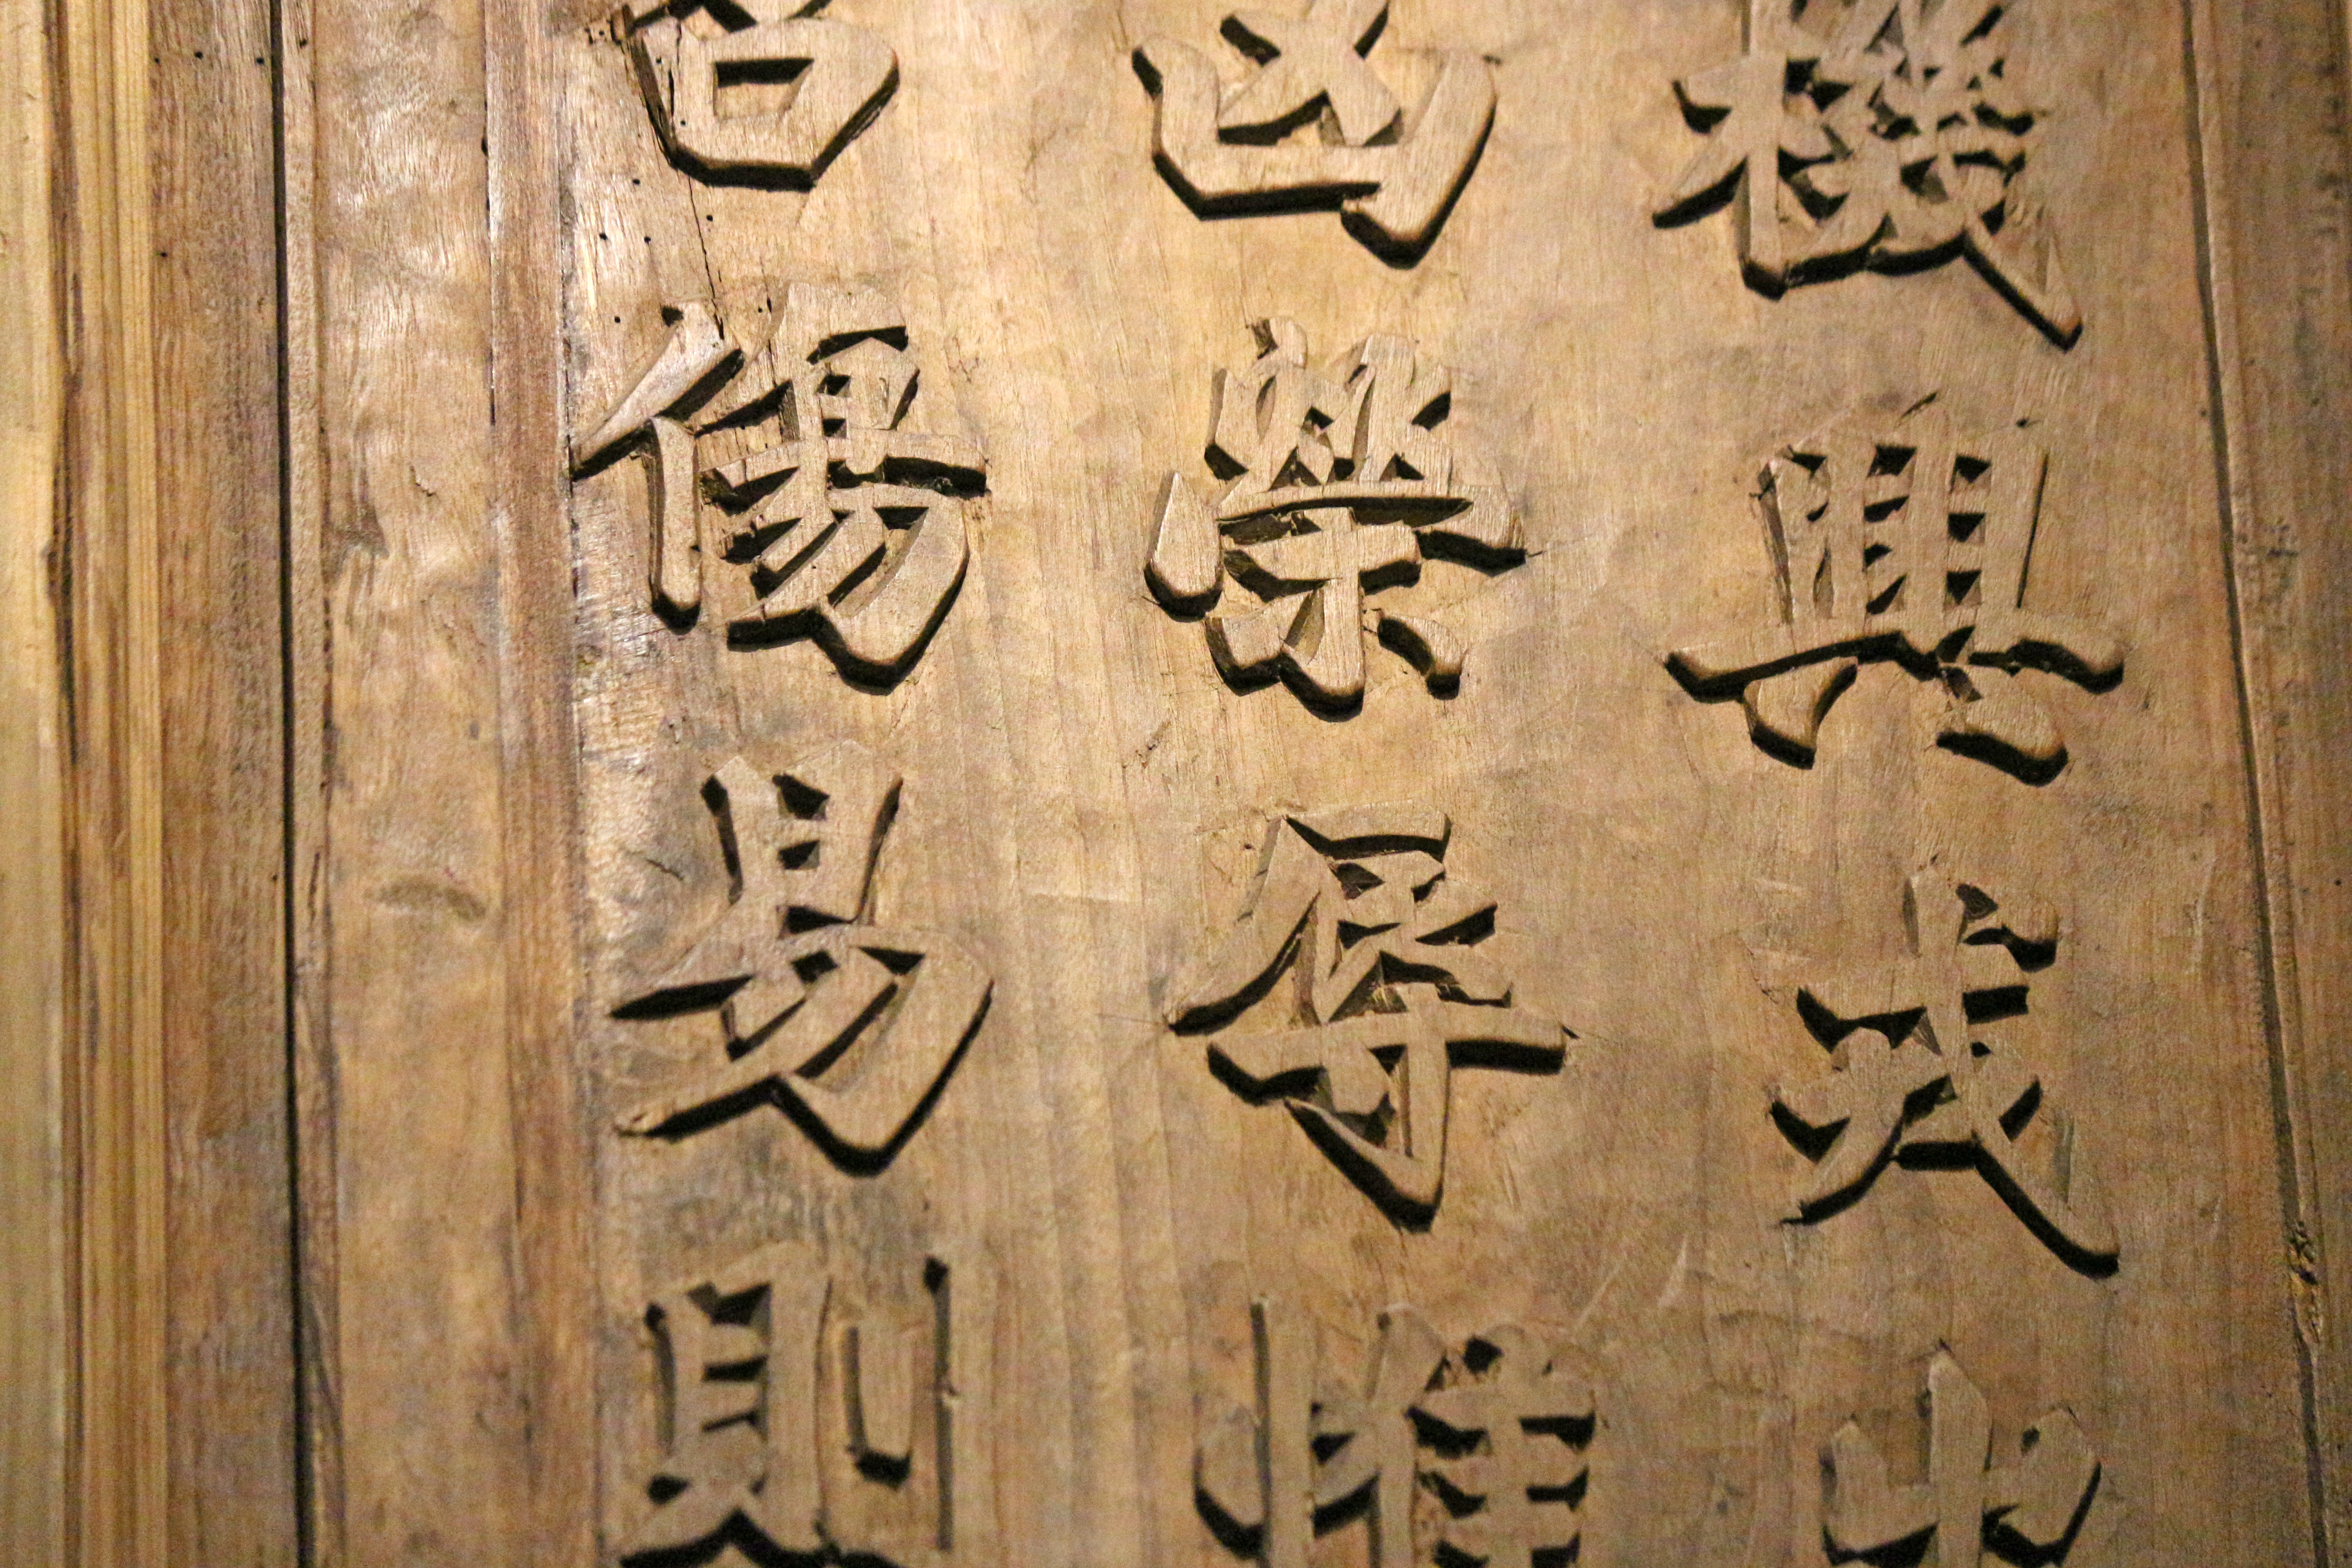 機興戎出
凶榮辱惟
召傷易則